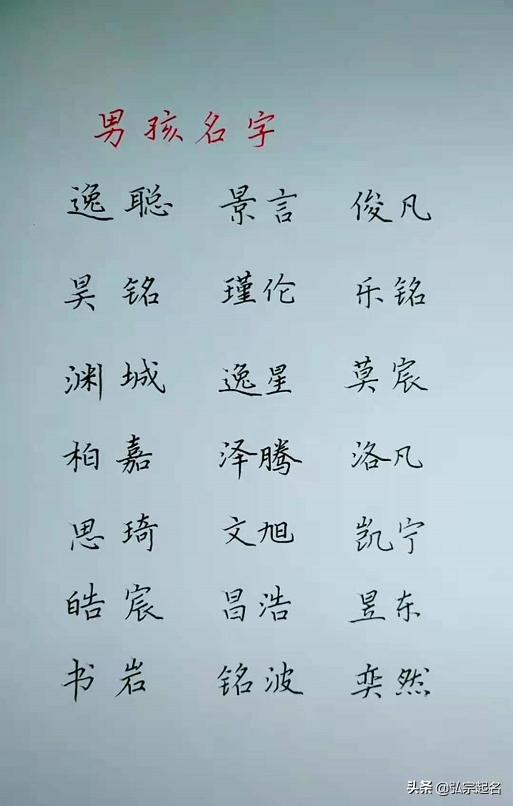 男孩名字
逸聪 景言 俊凡
昊铭 瑾伦 乐铭
渊城 逸星 莫宸
柏嘉 泽腾 洛凡
思琦 文旭 凯宁
皓宸 昌浩 昱东
书岩 铭波 奕然
头条 @弘宗起名